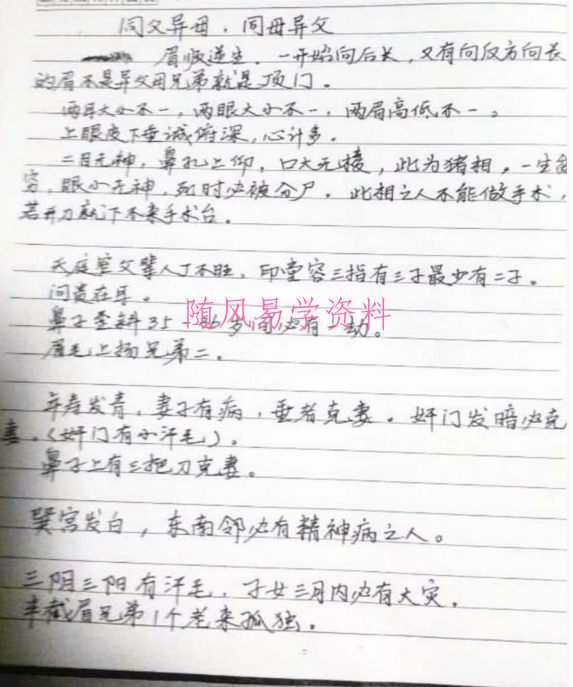 同父异母，同母异父
眉顺逆生．一开始向后长，又有向反方向长
的眉不是异父母兄弟就是顶门．
两耳大小不一，两眼大小不一，两眉高低不一。
上眼皮下垂诚俯深，心计多．
二目元神，鼻孔上仰，口大无棱，此为猪相，一生
穷，眼小无神，死时必被分尸．此相之人不能做手术，
若开刀就下不来手术台．
天庭窄父辈人丁不旺，印堂容三指有三子最少有二子。
问贵在耳．
鼻子歪斜35-36岁间必有一劫。
眉毛上扬兄弟二．
随风易学资料
年寿发青，妻子有病，重者克妻．奸门发暗必克
妻．（奸门有小汗毛）．
鼻子上有三把刀克妻。
巽宫发白，东南邻必有精神病之人。
三阴三阳有汗毛，子女三月内必有大灾．
半截眉兄弟1个老来孤独．